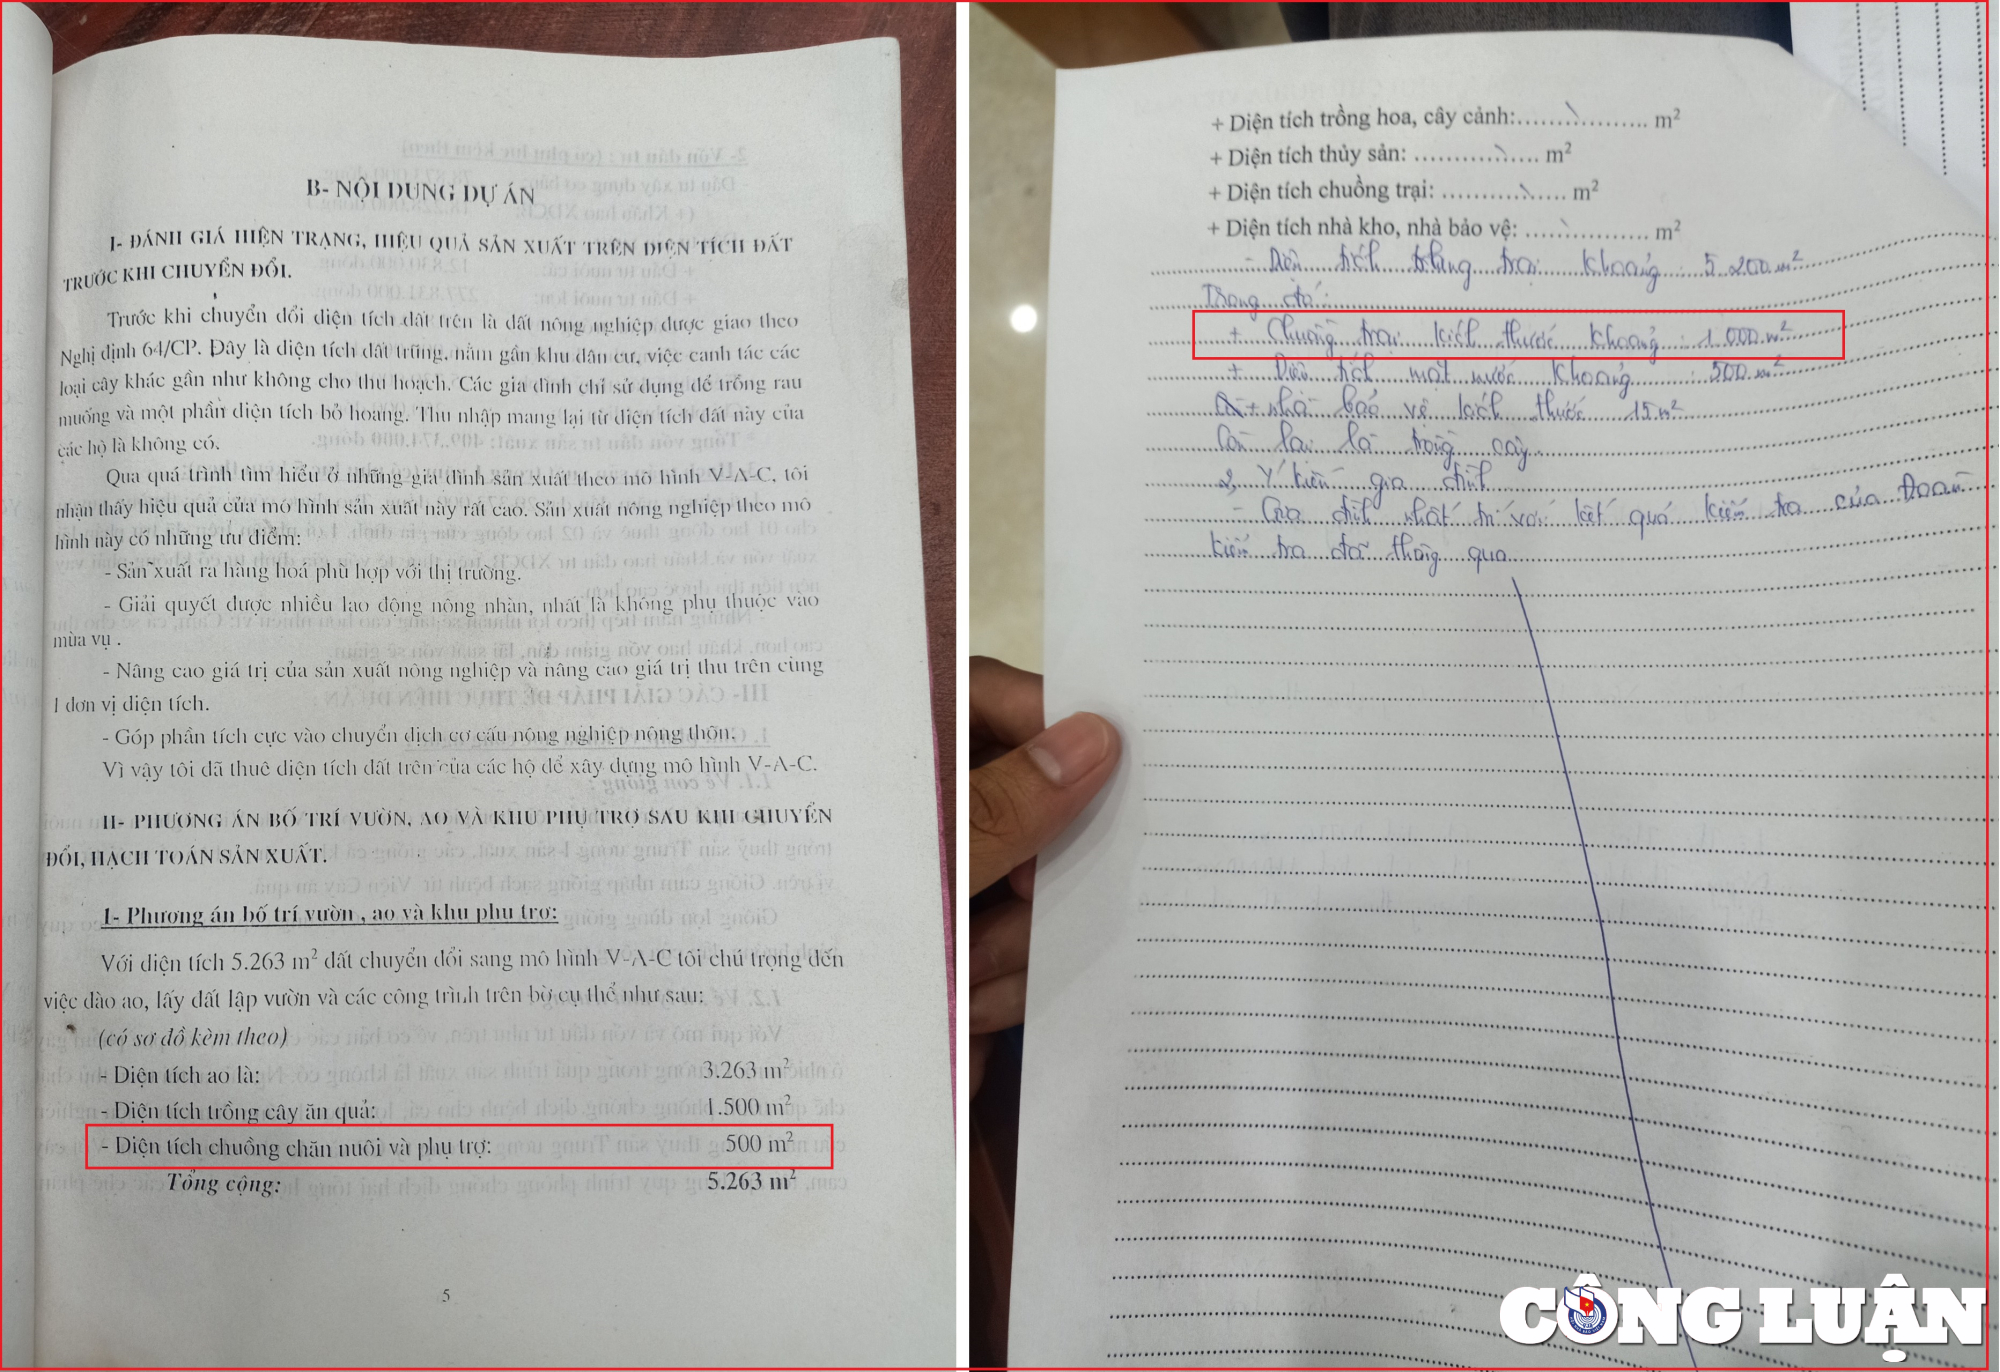 B- NỘI DUNG DỰ ÁN
I- ĐÁNH GIÁ HIỆN TRẠNG, HIỆU QUẢ SẢN XUẤT TRÊN DIỆN TÍCH ĐẤT
TRƯỚC KHI CHUYỂN ĐỔI.
Trước khi chuyển đổi diện tích đất trên là đất nông nghiệp được giao theo
Nghị định 64/CP. Đây là diện tích đất trũng, nằm gần khu dân cư, việc canh tác các
loại cây khác gần như không cho thu hoạch. Các gia đình chỉ sử dụng để trồng rau
muống và một phần diện tích bỏ hoang. Thu nhập mang lại từ diện tích đất này của
các hộ là không có.
Qua quá trình tìm hiểu ở những gia đình sản xuất theo mô hình V-A-C, tôi
nhận thấy hiệu quả của mô hình sản xuất này rất cao. Sản xuất nông nghiệp theo mô
hình này có những ưu điểm:
- Sản xuất ra hàng hoá phù hợp với thị trường.
- Giải quyết được nhiều lao động nông nhàn, nhất là không phụ thuộc vào
mùa vụ .
- Nâng cao giá trị của sản xuất nông nghiệp và nâng cao giá trị thu trên cùng
1 đơn vị diện tích.
- Góp phần tích cực vào chuyển dịch cơ cấu nông nghiệp nông thôn.
Vì vậy tôi đã thuê diện tích đất trên của các hộ để xây dựng mô hình V-A-C.
II- PHƯƠNG ÁN BỐ TRÍ VƯỜN, AO VÀ KHU PHỤ TRỢ SAU KHI CHUYỂN
ĐỔI, HẠCH TOÁN SẢN XUẤT.
1- Phương án bố trí vườn , ao và khu phụ trợ:
Với diện tích 5.263 m² đất chuyển đổi sang mô hình V-A-C tôi chú trọng đến
việc đào ao, lấy đất lập vườn và các công trình trên bờ cụ thể như sau:
(có sơ đồ kèm theo)
- Diện tích ao là: 3.263 m²
- Diện tích trồng cây ăn quả: 1.500 m²
- Diện tích chuồng chăn nuôi và phụ trợ: 500 m²
Tổng cộng: 5.263 m²
5
+ Diện tích trồng hoa, cây cảnh:.................. m²
+ Diện tích thủy sản: ................. m²
+ Diện tích chuồng trại: ................. m²
+ Diện tích nhà kho, nhà bảo vệ: ................. m²
- Diện tích trang trại khoảng : 5.200 m²
Trong đó:
+ Chuồng trại kích thước khoảng : 1.000 m²
+ Diện tích mặt nước khoảng : 500 m²
+ nhà bảo vệ kích thước 15 m²
Còn lại là trồng cây
2, Ý kiến gia đình
- Gia đình nhất trí với kết quả kiểm tra của Đoàn
kiểm tra đã thông qua
CÔNG LUẬN